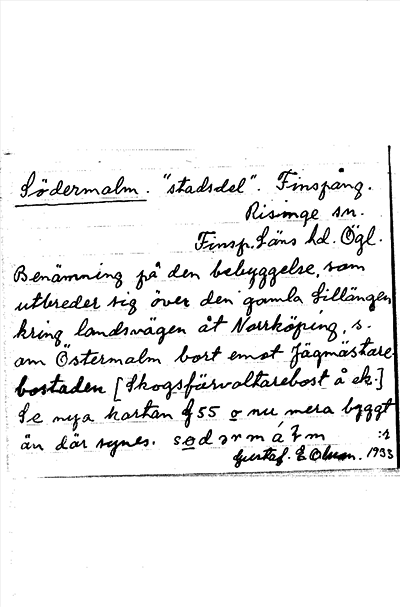 Södermalm. "stadsdel". Finspång.
Risinge sn.
Finsp. Läns hd. Ögl.
Benämning på den bebyggelse, som
utbreder sig över den gamla Lillängen
kring landsvägen åt Norrköping, s.
om Östermalm bort emot Jägmästare
bostaden [Skogsförvaltarebost å ek.]
Se nya kartan § 55 o nu mera byggt
än där synes.
Gustaf. E Olsson. 1933